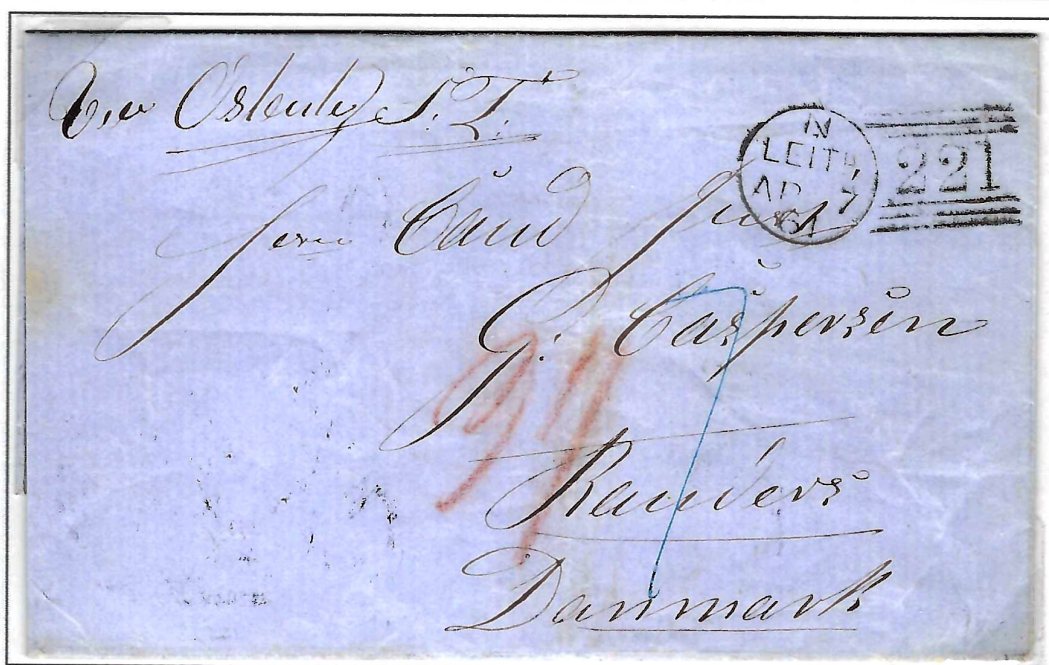 Via Ostende S. T.
N
LEITH
AP 7
61
221
Herrn Cand Jur
G. Caspersen
37
7
Randers
Danmark